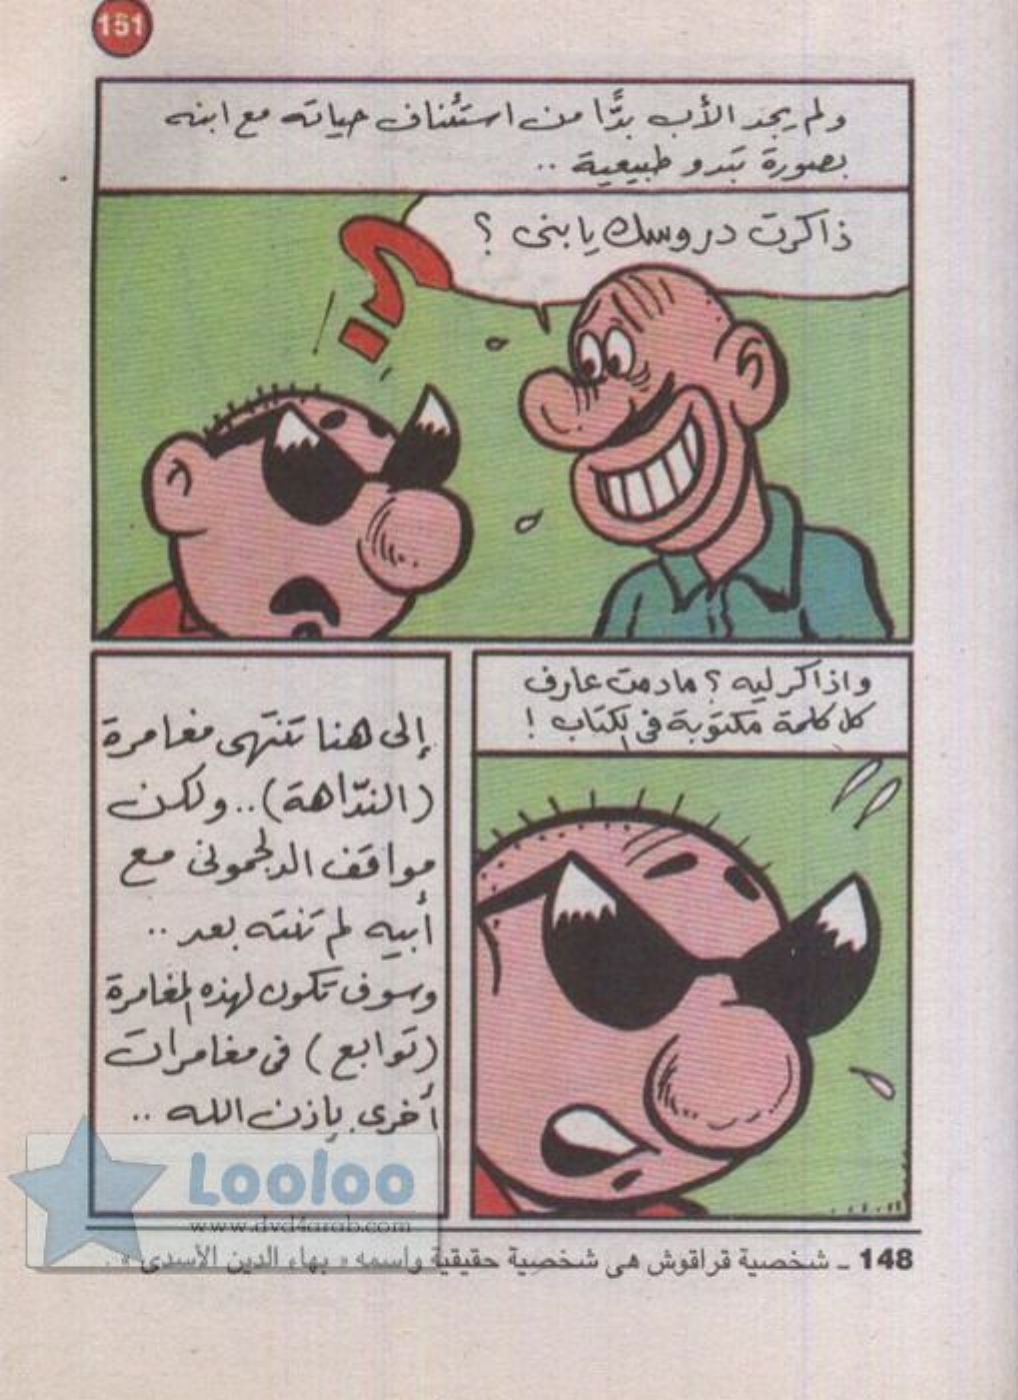 151
ولم يجد الأب بدًّا من استئناف حياته مع ابنه
بصورة تبدو طبيعية ..
ذاكرت دروسك يا بنى ؟
؟!
واذاكر ليه ؟ مادمت عارف
كل كلمة مكتوبة فى الكتاب !
إلى هنا تنتهى مغامرة
(الندّاهة) .. ولكن
مواقف الدلجمونى مع
أبيه لم تنته بعد ..
وسوف تكون لهذه المغامرة
(توابع) فى مغامرات
أخرى بإذن الله ..
Looloo
www.dvd4arab.com
148 ـ شخصية قراقوش هى شخصية حقيقية واسمه « بهاء الدين الأسدى » .